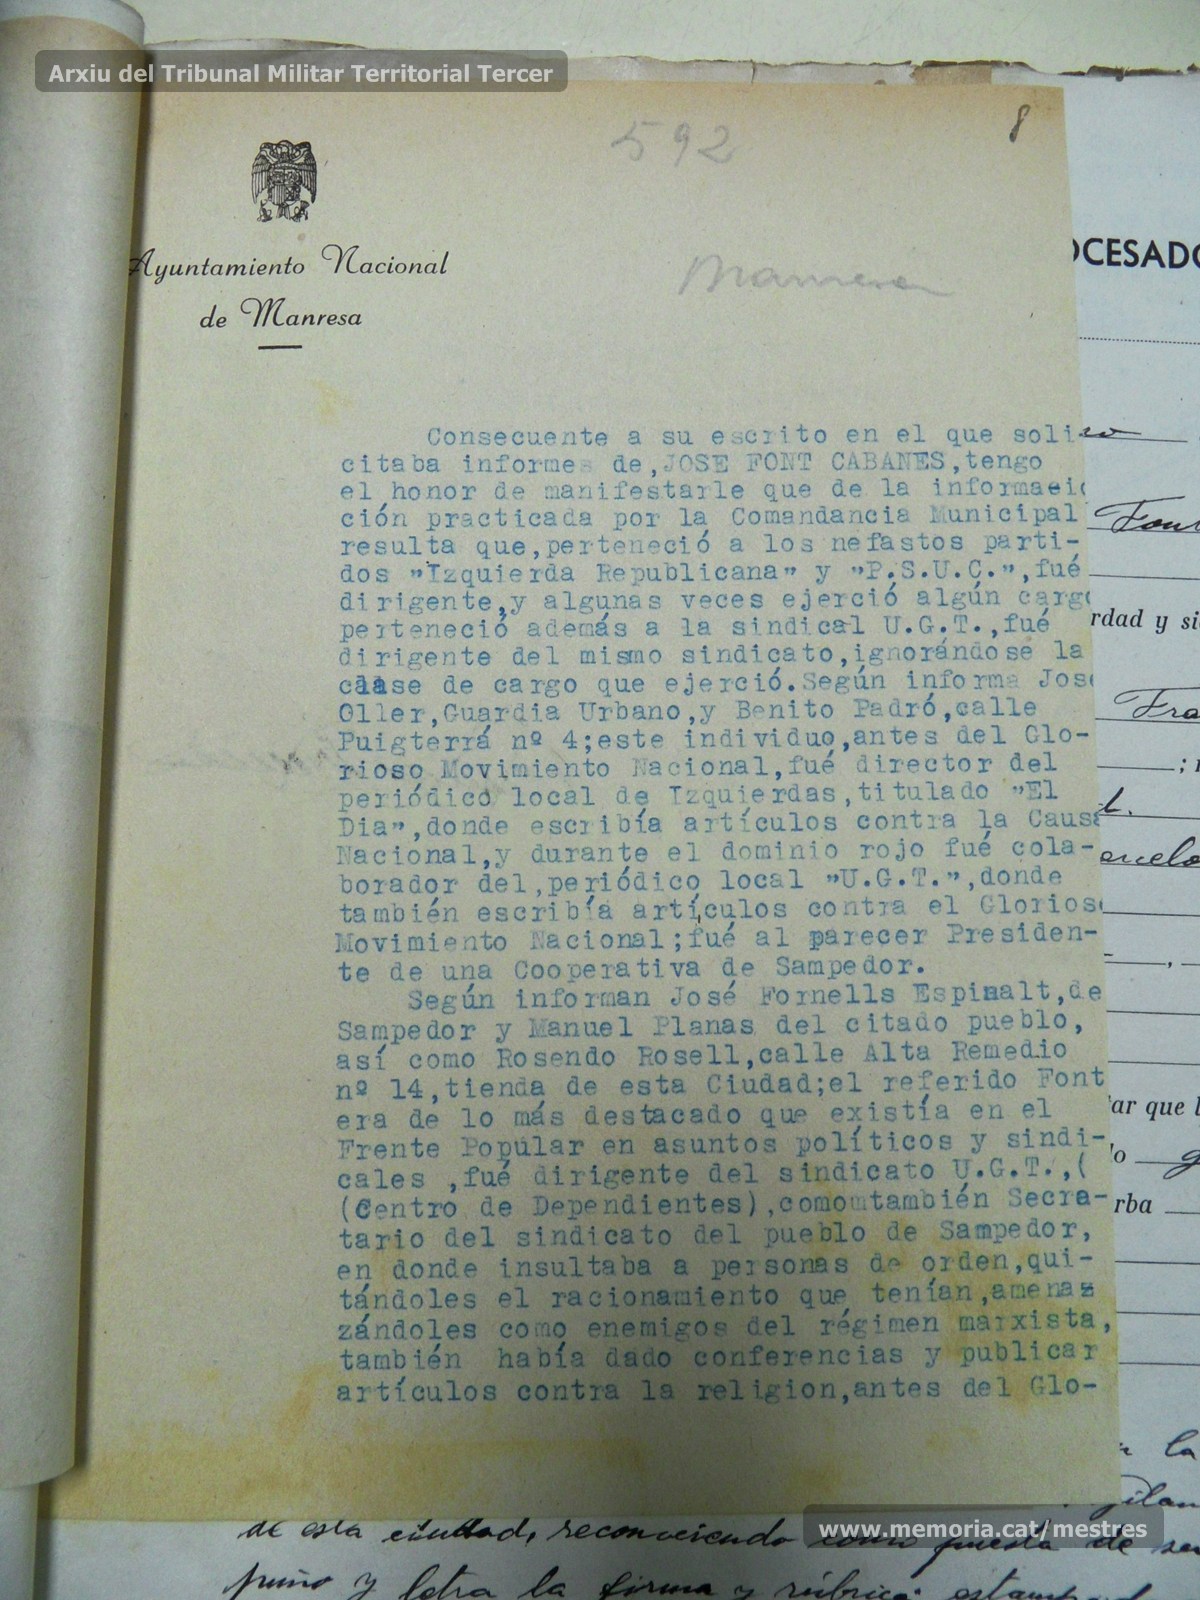 Arxiu del Tribunal Militar Territorial Tercer
592
8
Manresa
Ayuntamiento Nacional
de Manresa
Consecuente a su escrito en el que soli-
citaba informes de,JOSE FONT CABANES,tengo
el honor de manifestarle que de la informaci
ción practicada por la Comandancia Municipal
resulta que,perteneció a los nefastos parti-
dos "Izquierda Republicana" y "P.S.U.C.",fué
dirigente,y algunas veces ejerció algún cargo
perteneció además a la sindical U.G.T.,fué
dirigente del mismo sindicato,ignorándose la
clase de cargo que ejerció.Según informa José
Oller,Guardia Urbano,y Benito Padró,calle
Puigterrá nº 4;este individuo,antes del Glo-
rioso Movimiento Nacional,fué director del
periódico local de Izquierdas,titulado "El
Dia",donde escribía artículos contra la Causa
Nacional,y durante el dominio rojo fué cola-
borador del,periódico local "U.G.T.",donde
también escribía artículos contra el Glorioso
Movimiento Nacional;fué al parecer Presiden-
te de una Cooperativa de Sampedor.
Según informan José Fornells Espinalt,de
Sampedor y Manuel Planas del citado pueblo,
así como Rosendo Rosell,calle Alta Remedio
nº 14,tienda de esta Ciudad;el referido Font
era de lo más destacado que existía en el
Frente Popular en asuntos políticos y sindi-
cales ,fué dirigente del sindicato U.G.T.,(
(Centro de Dependientes),comomtambién Secra-
tario del sindicato del pueblo de Sampedor,
en donde insultaba a personas de orden,qui-
tándoles el racionamiento que tenían,amenaz
zándoles como enemigos del régimen marxista,
también había dado conferencias y publicar
artículos contra la religion,antes del Glo-
OCESADO
Font
rdad y si
Fra
; n
tar que l
lo
rba
n la
de esta ciudad, reconociendo como puesta de su
puño y letra la firma y rúbrica
www.memoria.cat/mestres